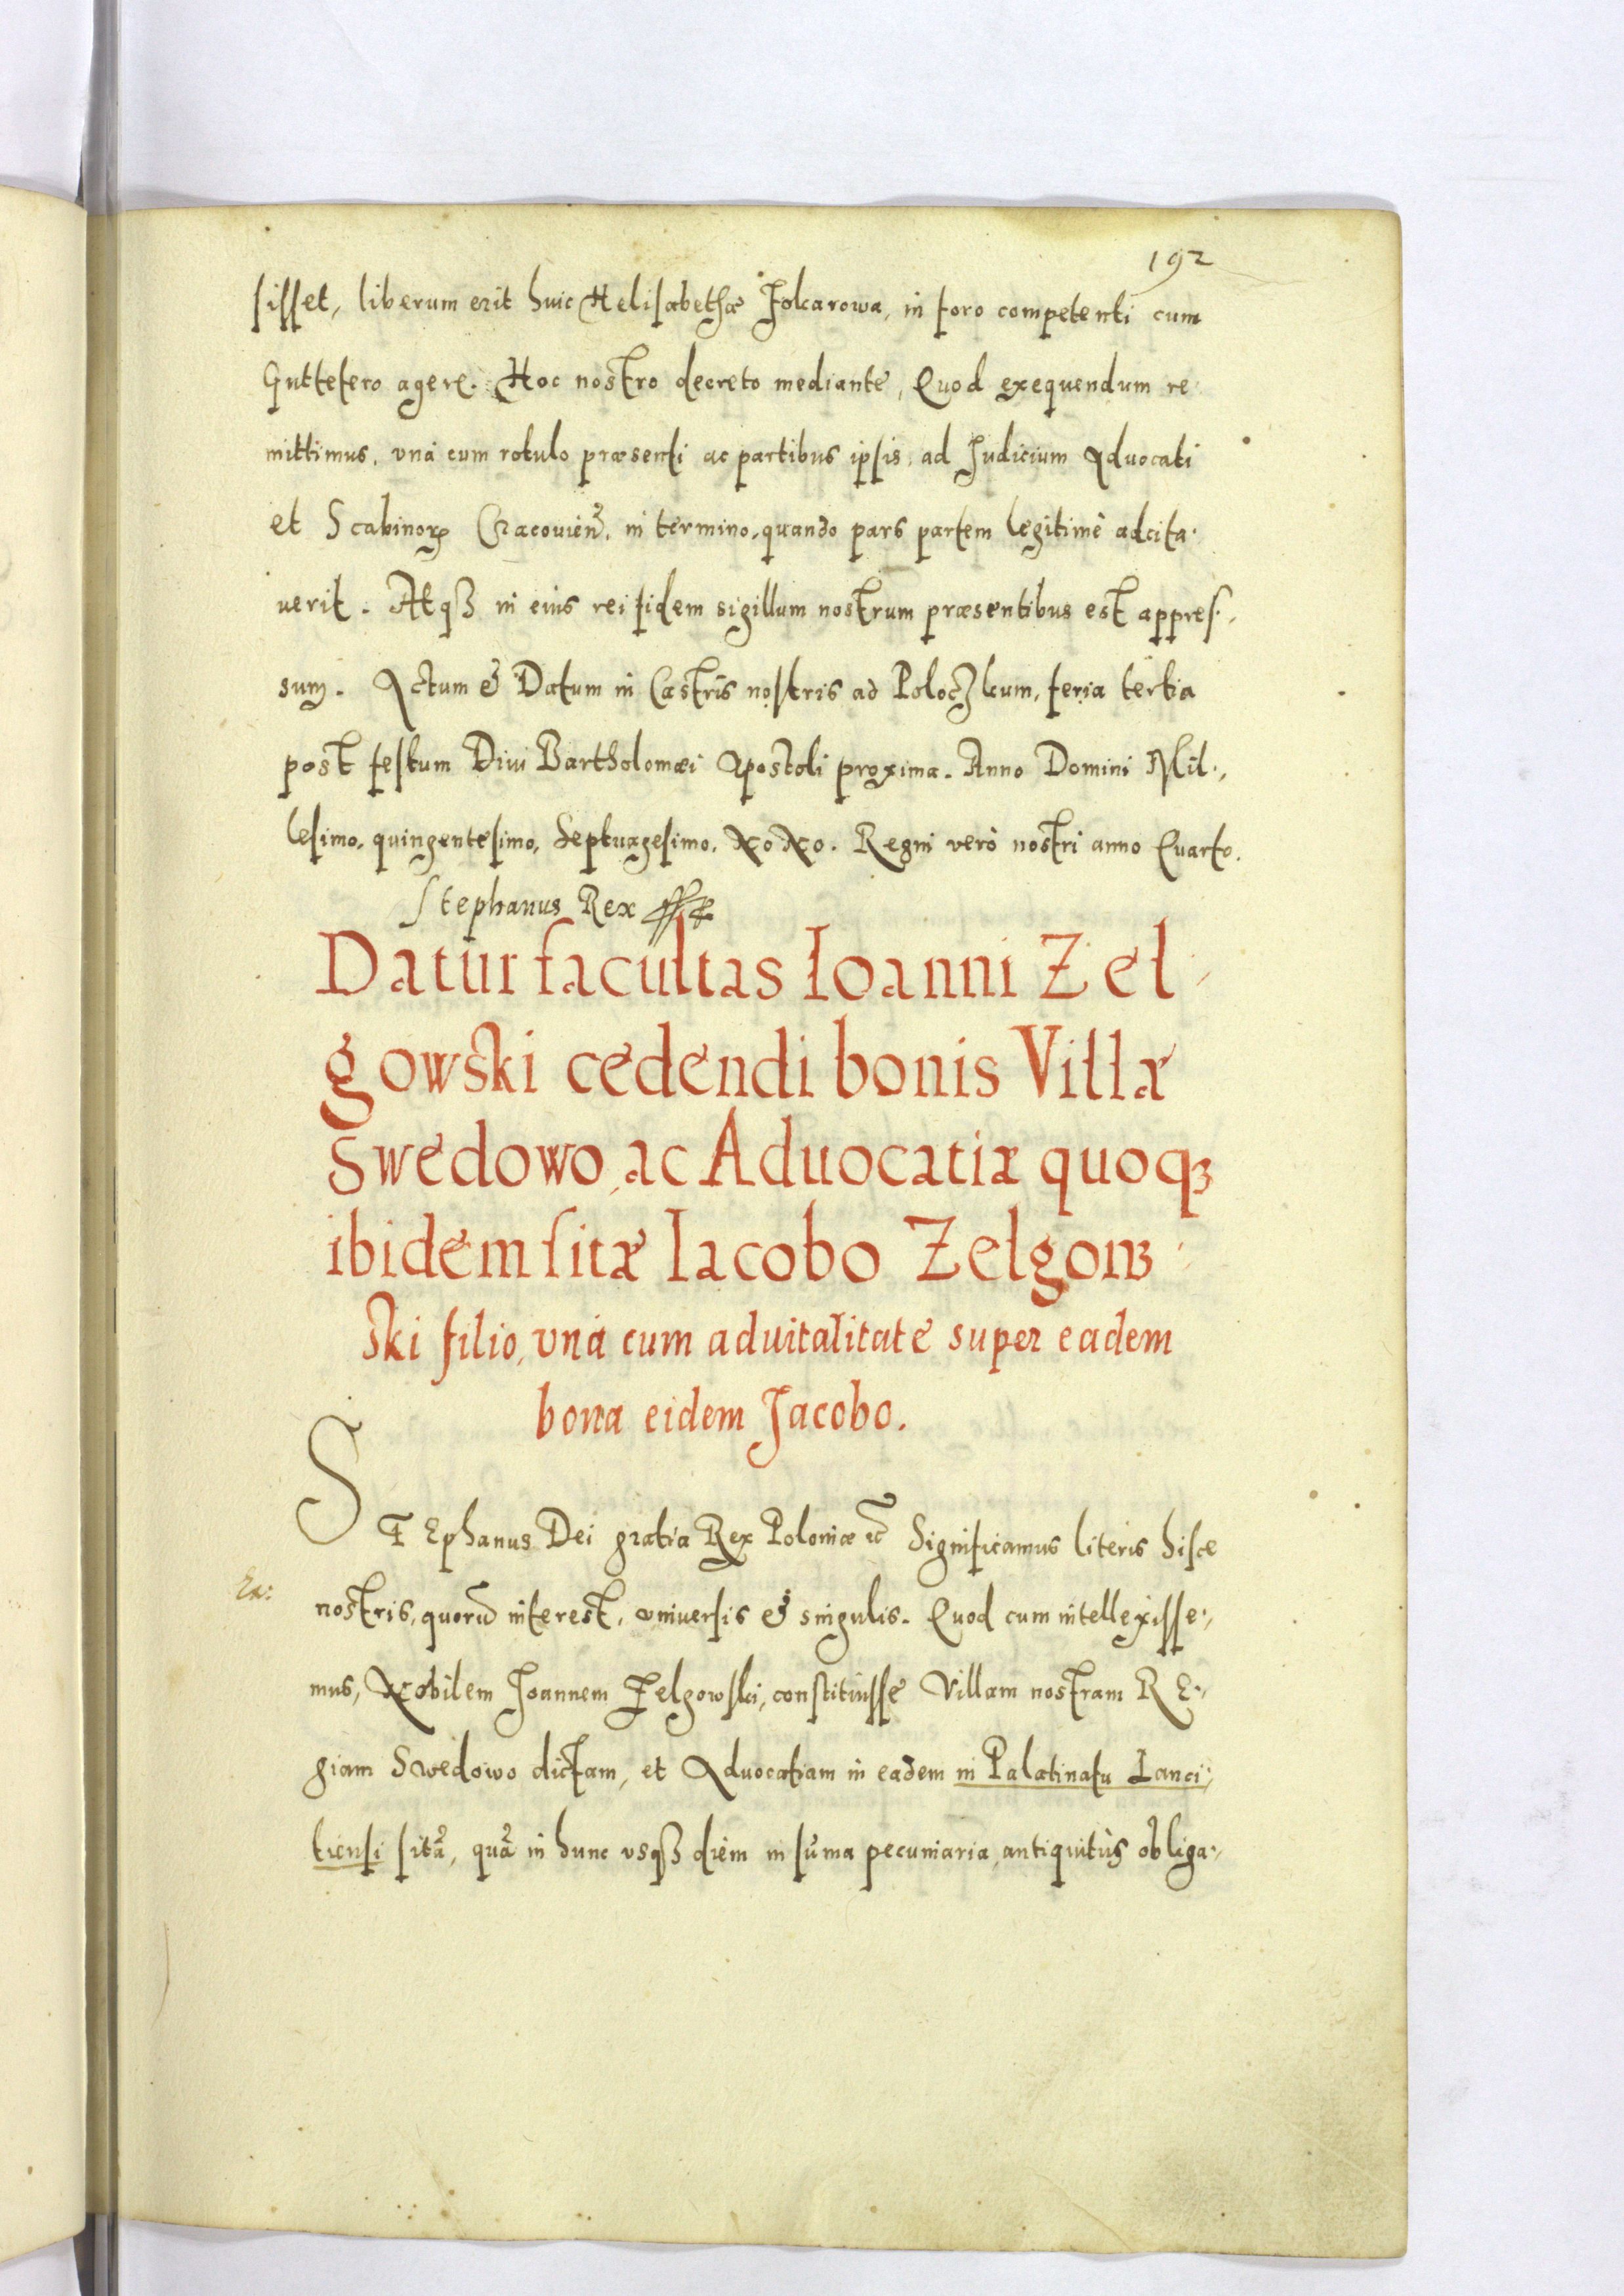 192
sisset, liberum erit huic Helisabethæ Folcarowa, in foro competenti cum
Guttetero agere. Hoc nostro decreto mediante, Quod exequendum re
mittimus, vnà cum rotulo præsenti ac partibus ipsis, ad Judicium Aduocati
et Scabinorꝝ Cracouien̄. in termino, quando pars partem legitimè adcita-
uerit. Atqꝫ in eius rei fidem sigillum nostrum præsentibus est appres-
sum. Actum & Datum in Castris nostris ad Poloczkum, feria tertia
post festum Diui Bartholomæi Apostoli proxima. Anno Domini Mil-
lesimo, quingentesimo, Septuagesimo, Nono. Regni verò nostri anno Quarto.
Stephanus Rex
Datur facultas Ioanni Zel-
gowski cedendi bonis Villæ
Swedowo, ac Aduocatiæ quoqꝫ
ibidem sitæ Iacobo Zelgow-
ski filio, vnà cum aduitalitate super eadem
bona eidem Jacobo.
STEphanus Dei gratia Rex Poloniæ etc̄ Significamus literis hisce
nostris, quorū interest, vniuersis & singulis. Quod cum intellexisse-
mus, Nobilem Joannem Zelgowski, constituisse Villam nostram RE-
giam Swedowo dictam, et Aduocatiam in eadem in Palatinatu Lanci-
tiensi sitā, quā in hunc vsqꝫ diem in sūma pecuniaria, antiquitùs obliga-